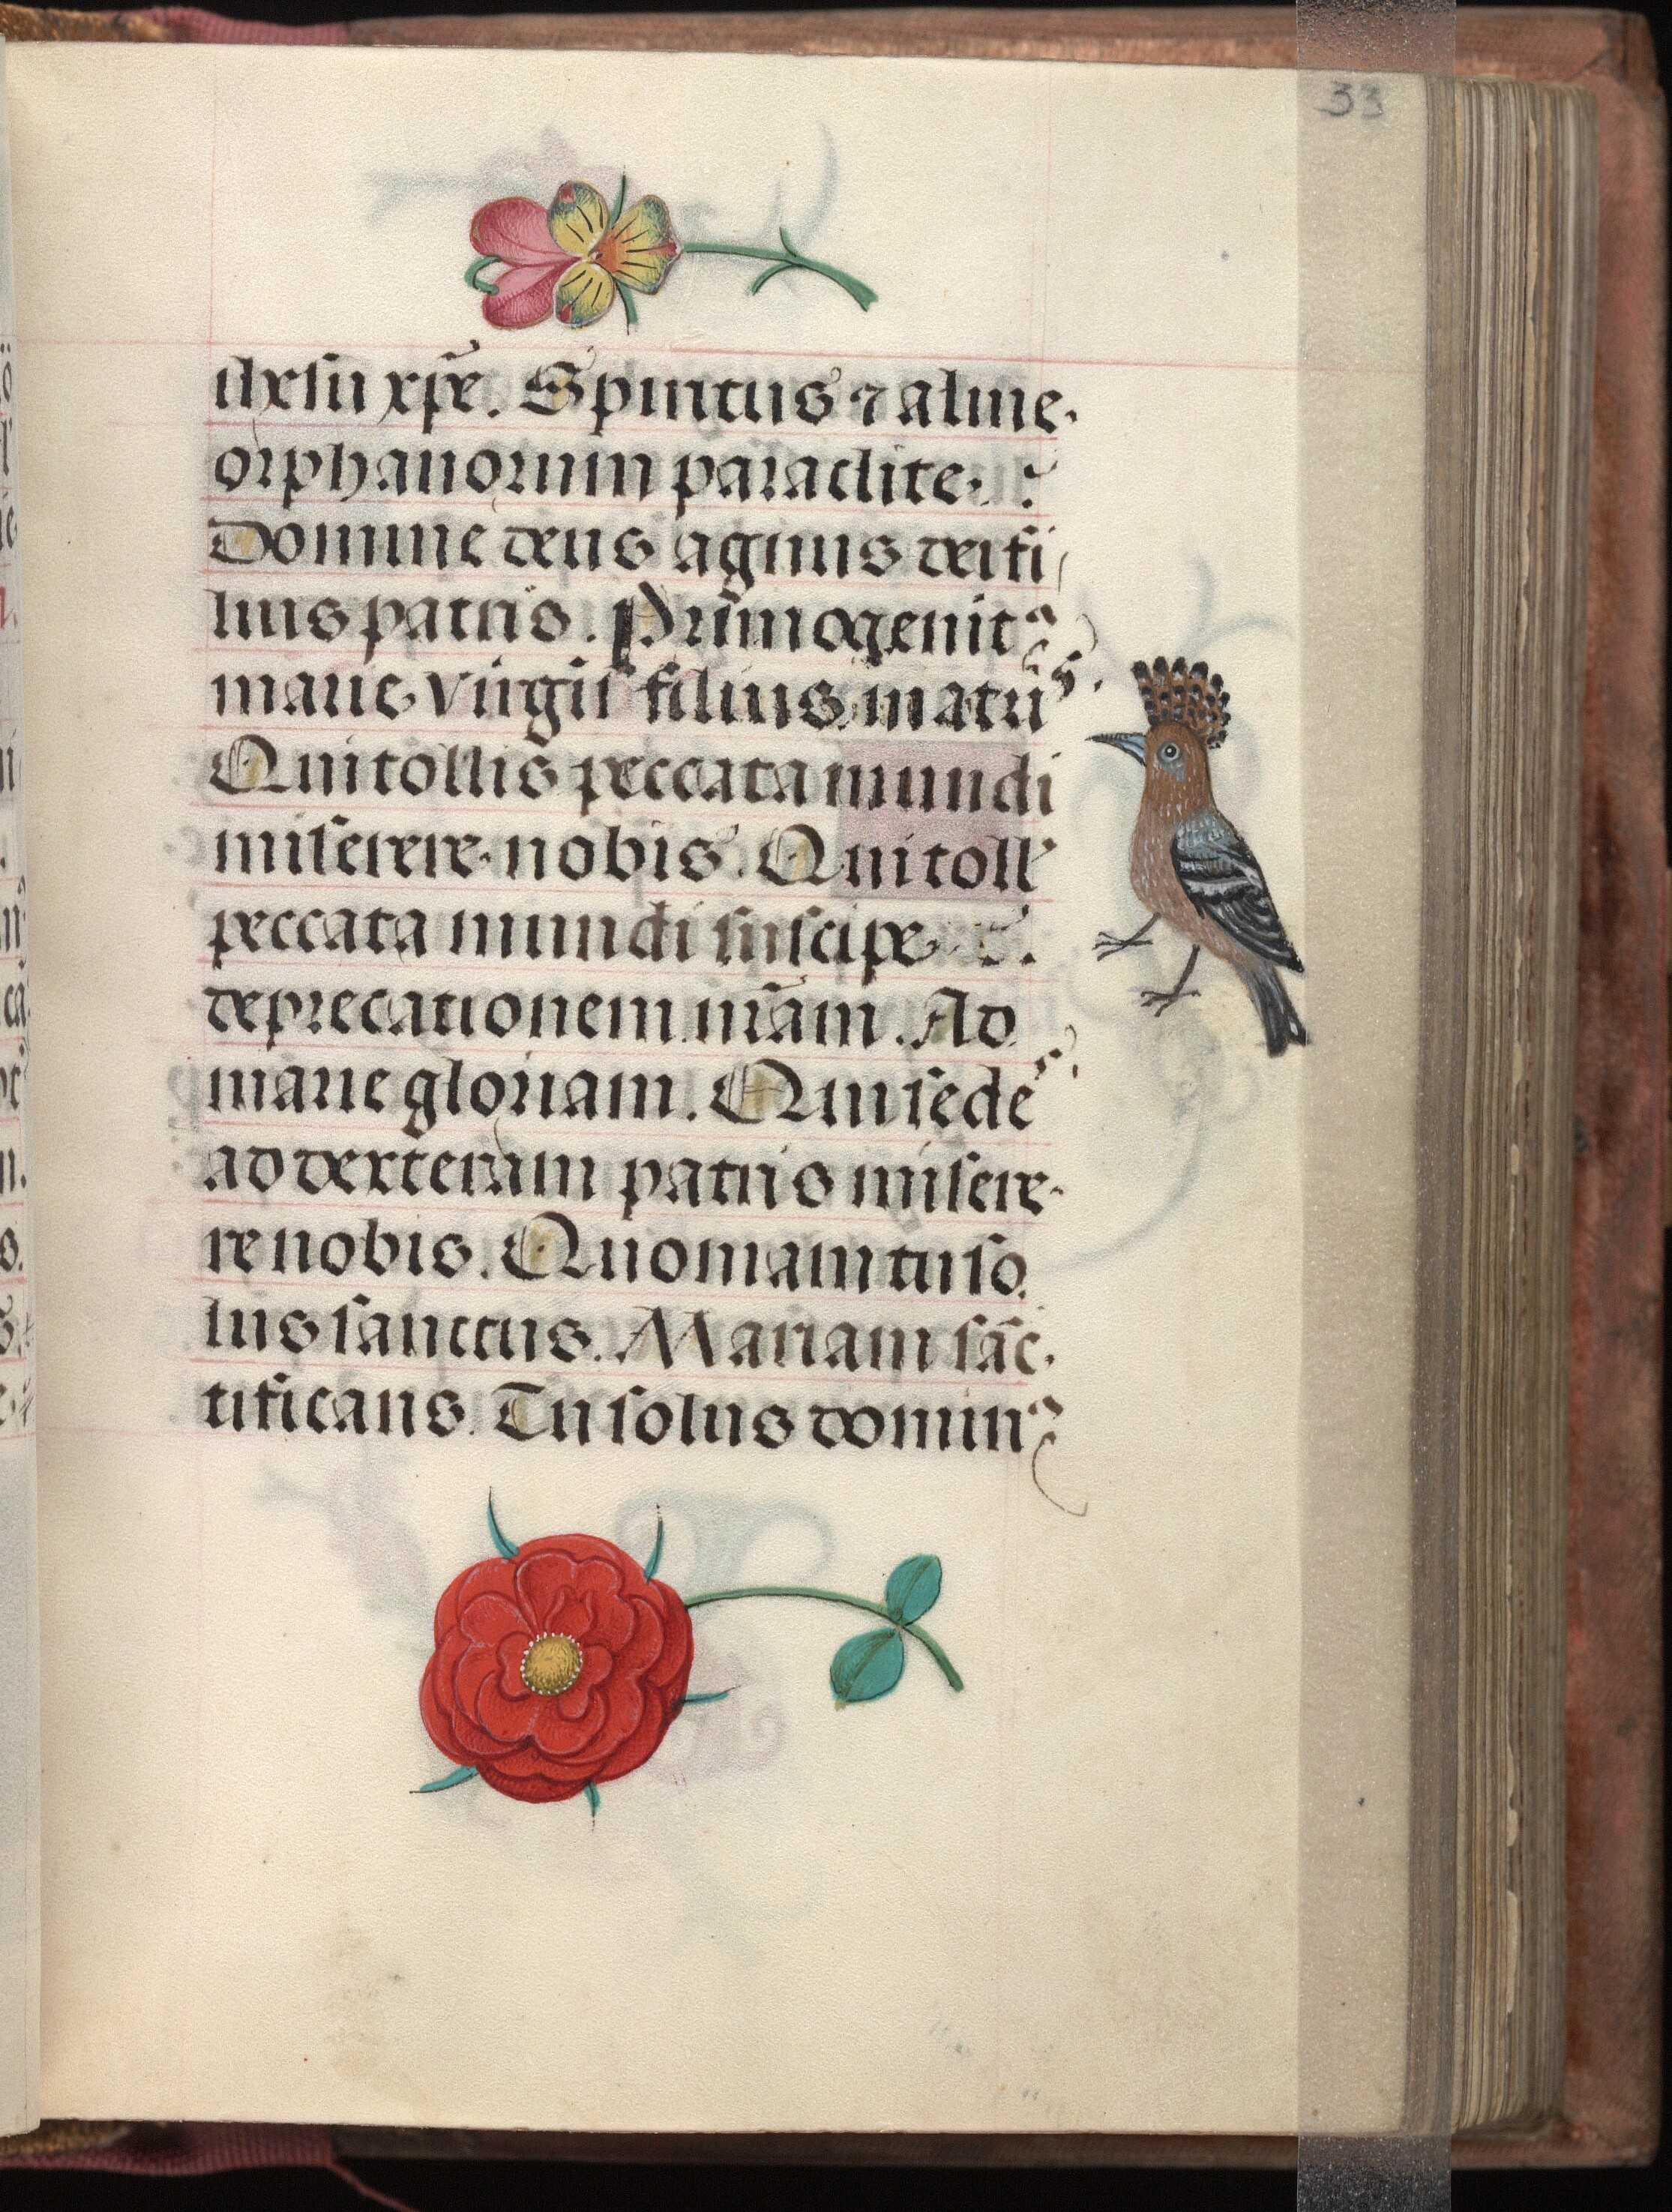 33
ihesu xpe. Spiritus ⁊ alme
orphanorum paraclite.
Domine deus agnus dei fi
lius patris. Primogenitꝰ
marie virgīs filius matris.
Qui tollis peccata mundi
miserere nobis. Qui tollˀ
peccata mundi suscipe
deprecationem nr̄am. Ad
marie gloriam. Qui sedes
ad dexteram patris misere
re nobis. Quoniam tu so
lus sanctus. Mariam sāc
tificans. Tu solus dominꝰ